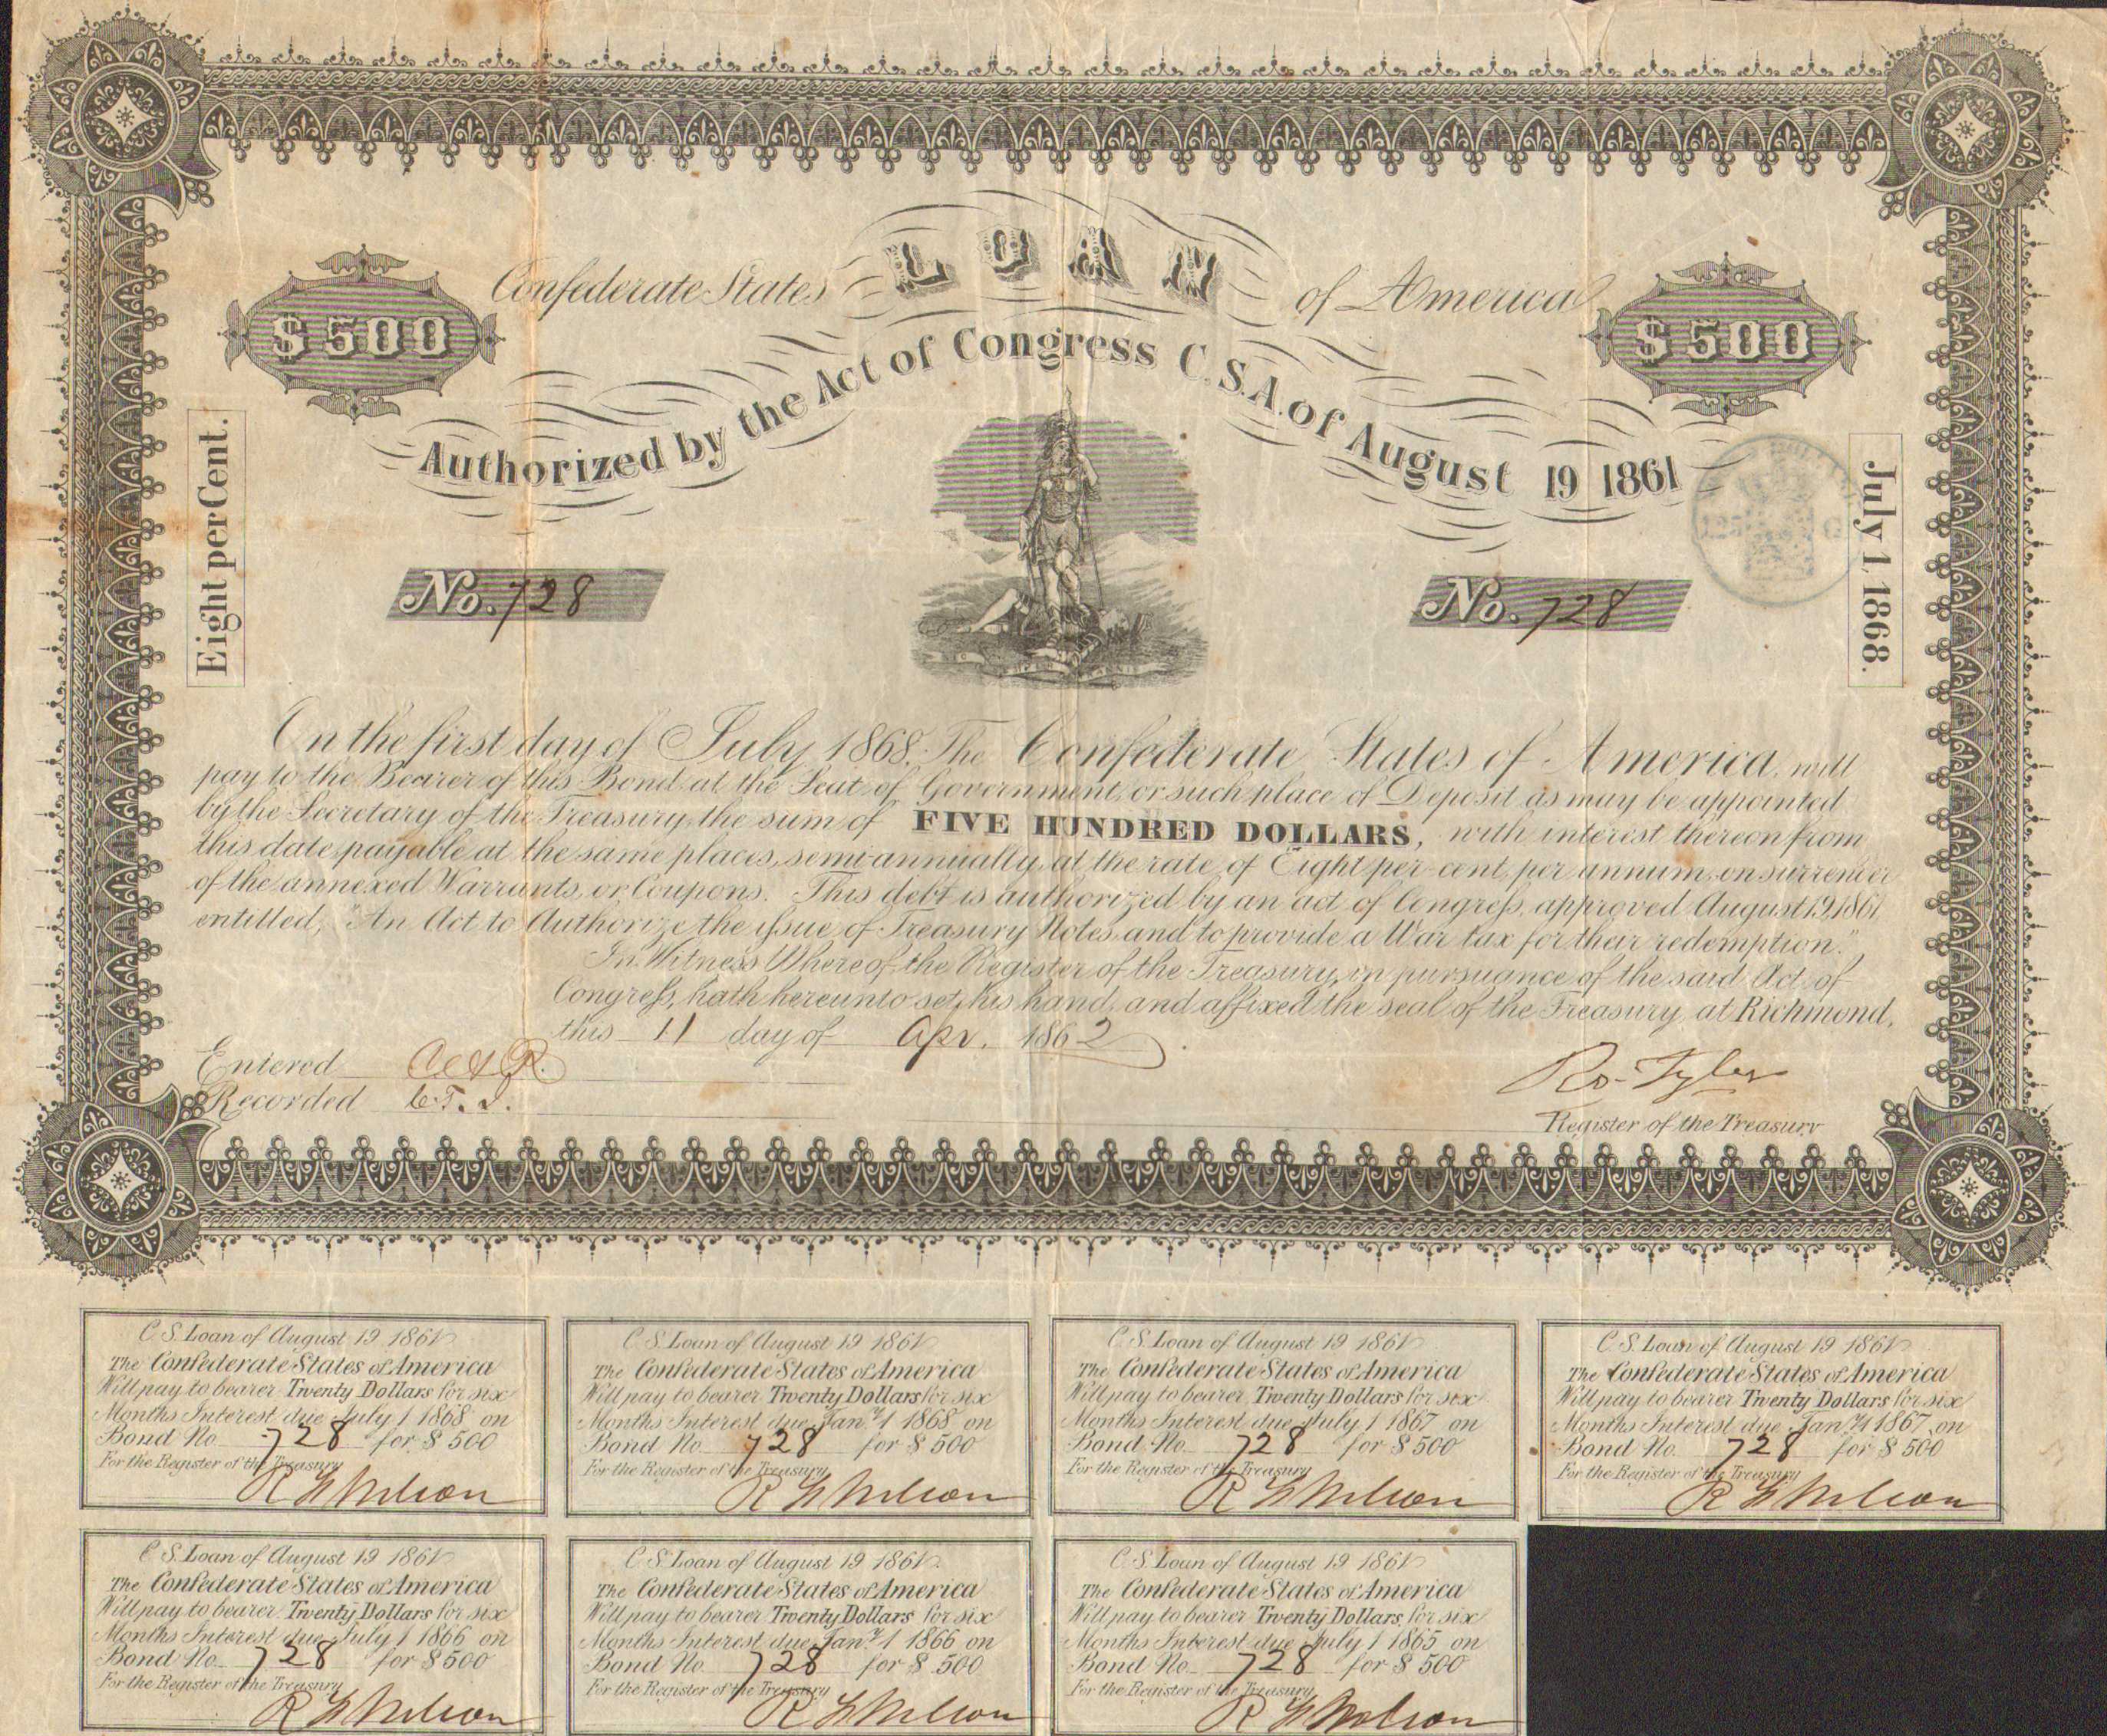 Confederate States LOAN of America
$500
$500
Authorized by the Act of Congress C.S.A. of August 19 1861
Eight per Cent.
July 1. 1868.
No. 728
No. 728
On the first day of July 1868. The Confederate States of America, will
pay to the Bearer of this Bond, at the Seat of Government, or such place of Deposit as may be appointed
by the Secretary of the Treasury, the sum of FIVE HUNDRED DOLLARS, with interest thereon from
this date, payable at the same places, semi-annually, at the rate of Eight per-cent, per annum, on surrender
of the annexed Warrants, or Coupons. This debt is authorized by an act of Congress, approved August 19, 1861,
entitled, "An Act to Authorize the issue of Treasury Notes, and to provide a War tax for their redemption."
In Witness Whereof the Register of the Treasury, in pursuance of the said Act of
Congress, hath hereunto set his hand, and affixed the seal of the Treasury, at Richmond,
this 11 day of Apr. 1862.
Entered
Recorded
Ro. Tyler
Register of the Treasury
C.S. Loan of August 19 1861
The Confederate States of America
Will pay to bearer Twenty Dollars for six
Months Interest due July 1 1868 on
Bond No. 728 for $ 500
For the Register of the Treasury
C.S. Loan of August 19 1861
The Confederate States of America
Will pay to bearer Twenty Dollars for six
Months Interest due Jan.y 1 1868 on
Bond No. 728 for $ 500
For the Register of the Treasury
C.S. Loan of August 19 1861
The Confederate States of America
Will pay to bearer Twenty Dollars for six
Months Interest due July 1 1867 on
Bond No. 728 for $ 500
For the Register of the Treasury
C.S. Loan of August 19 1861
The Confederate States of America
Will pay to bearer Twenty Dollars for six
Months Interest due Jan.y 1 1867 on
Bond No. 728 for $ 500
For the Register of the Treasury
C.S. Loan of August 19 1861
The Confederate States of America
Will pay to bearer Twenty Dollars for six
Months Interest due July 1 1866 on
Bond No. 728 for $ 500
For the Register of the Treasury
C.S. Loan of August 19 1861
The Confederate States of America
Will pay to bearer Twenty Dollars for six
Months Interest due Jan.y 1 1866 on
Bond No. 728 for $ 500
For the Register of the Treasury
C.S. Loan of August 19 1861
The Confederate States of America
Will pay to bearer Twenty Dollars for six
Months Interest due July 1 1865 on
Bond No. 728 for $ 500
For the Register of the Treasury